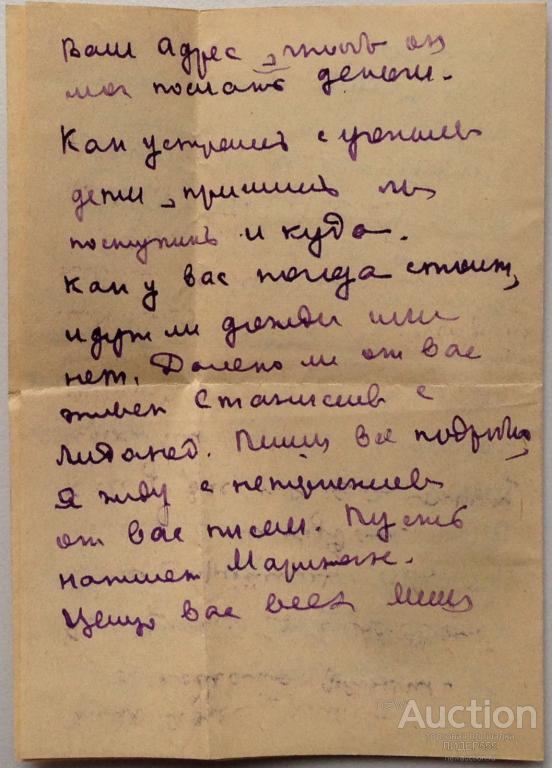 Ваш адрес, чтоб он
мог послать деньги.
Как устроились с
дети, пришлось ли
поступить и куда.
Как у вас погода стоит,
идут ли дожди или
нет. Далеко ли от вас
живет Станислав с
Пиши все подробно,
Я жду с нетерпением
от вас писем. Пусть
напишет
Целую вас всех
Auction